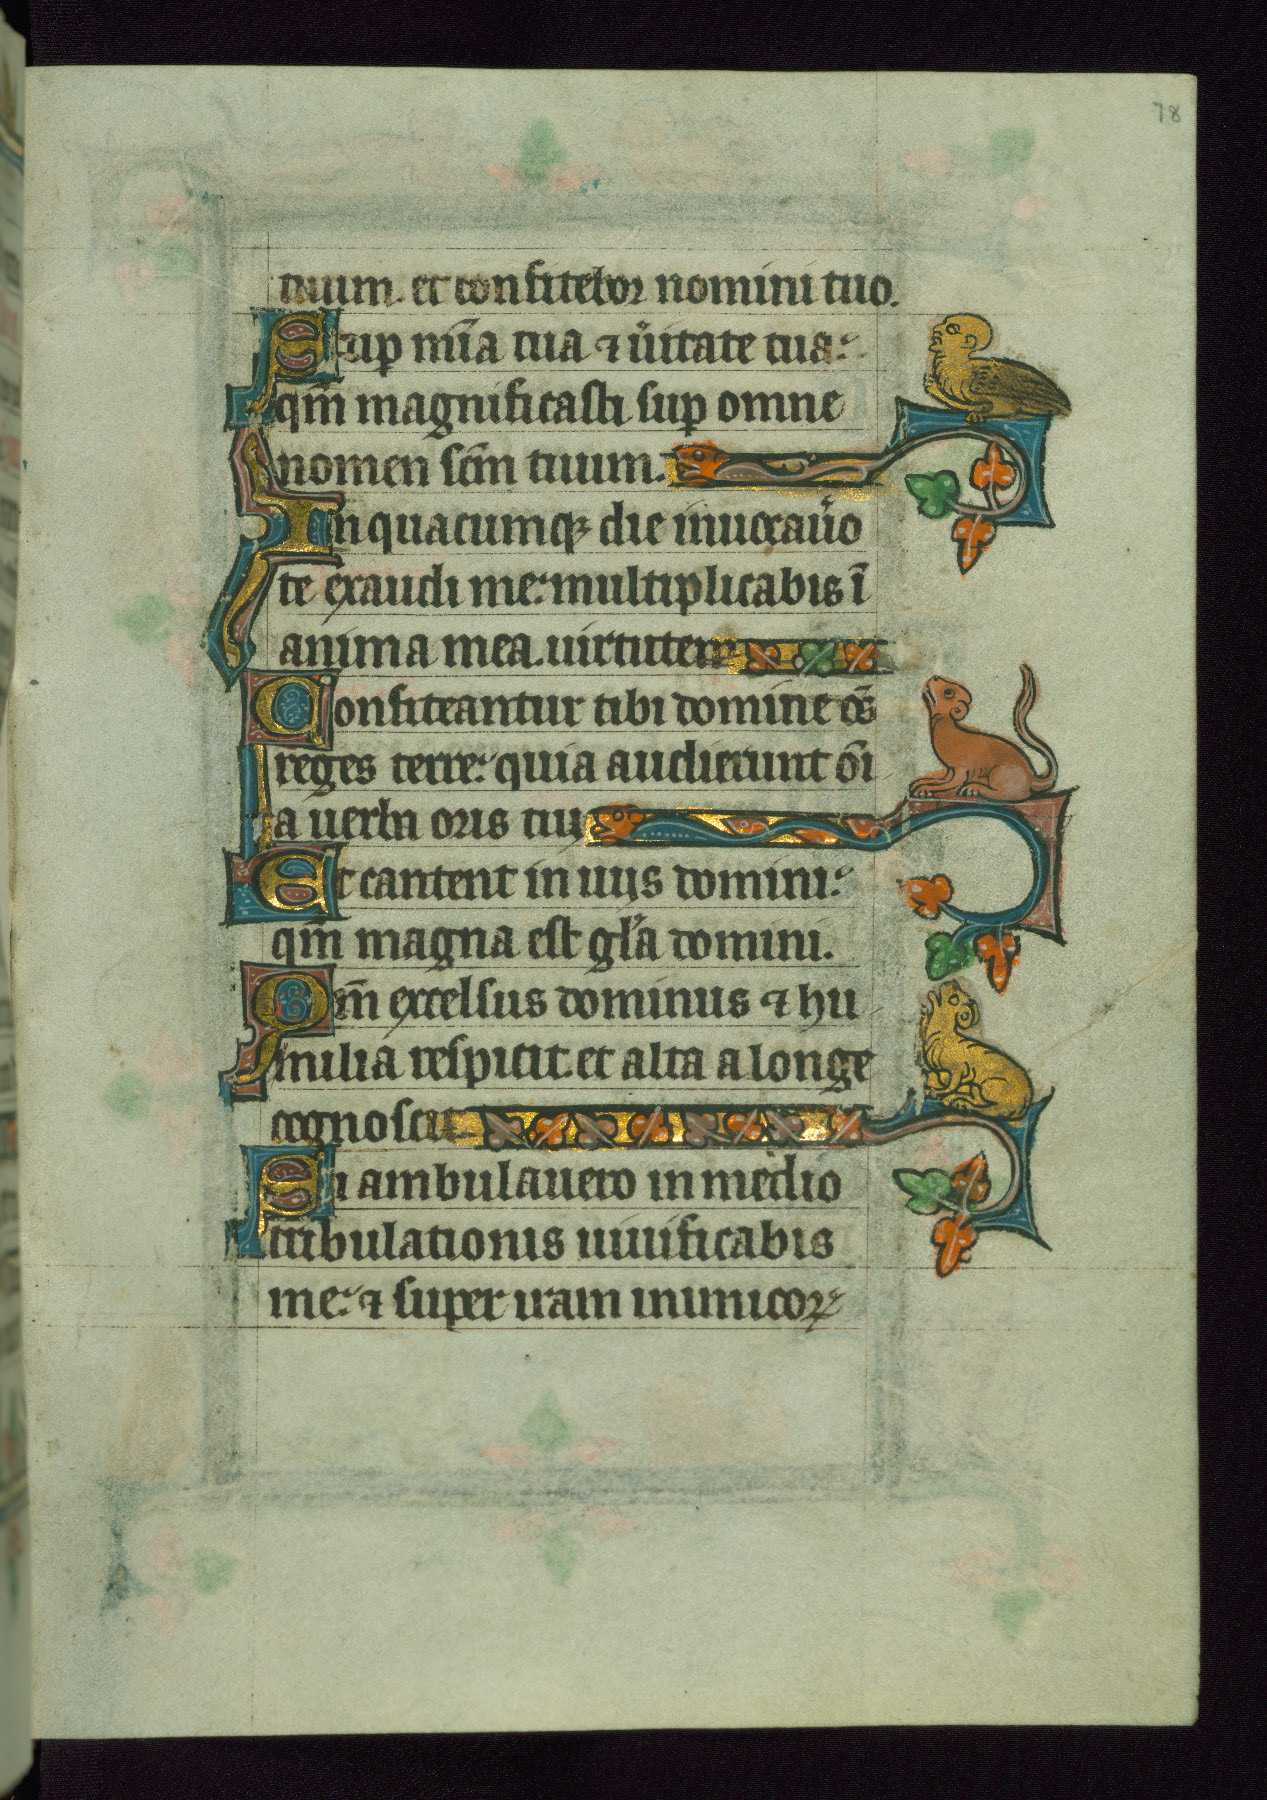 78
tuum. et confitebor nomini tuo.
Sup mīa tua ⁊ uʼitate tua:
qm̄ magnificasti sup omne
nomen scm̄ tuum.
In quacumqꝫ die inuocauʼo
te exaudi me: multiplicabis ī
anima mea. uirtutem
Confiteantur tibi domine om̄s
reges terre: quia audierunt om̄i
a uerba oris tui
Et cantent in uiis domini:
qm̄ magna est glʼa domini.
Qm̄ excelsus dominus ⁊ hu
milia respicit. et alta a longe
cognoscit
Si ambulauero in medio
tribulationis uiuificabis
me: ⁊ super iram inimicoꝝ